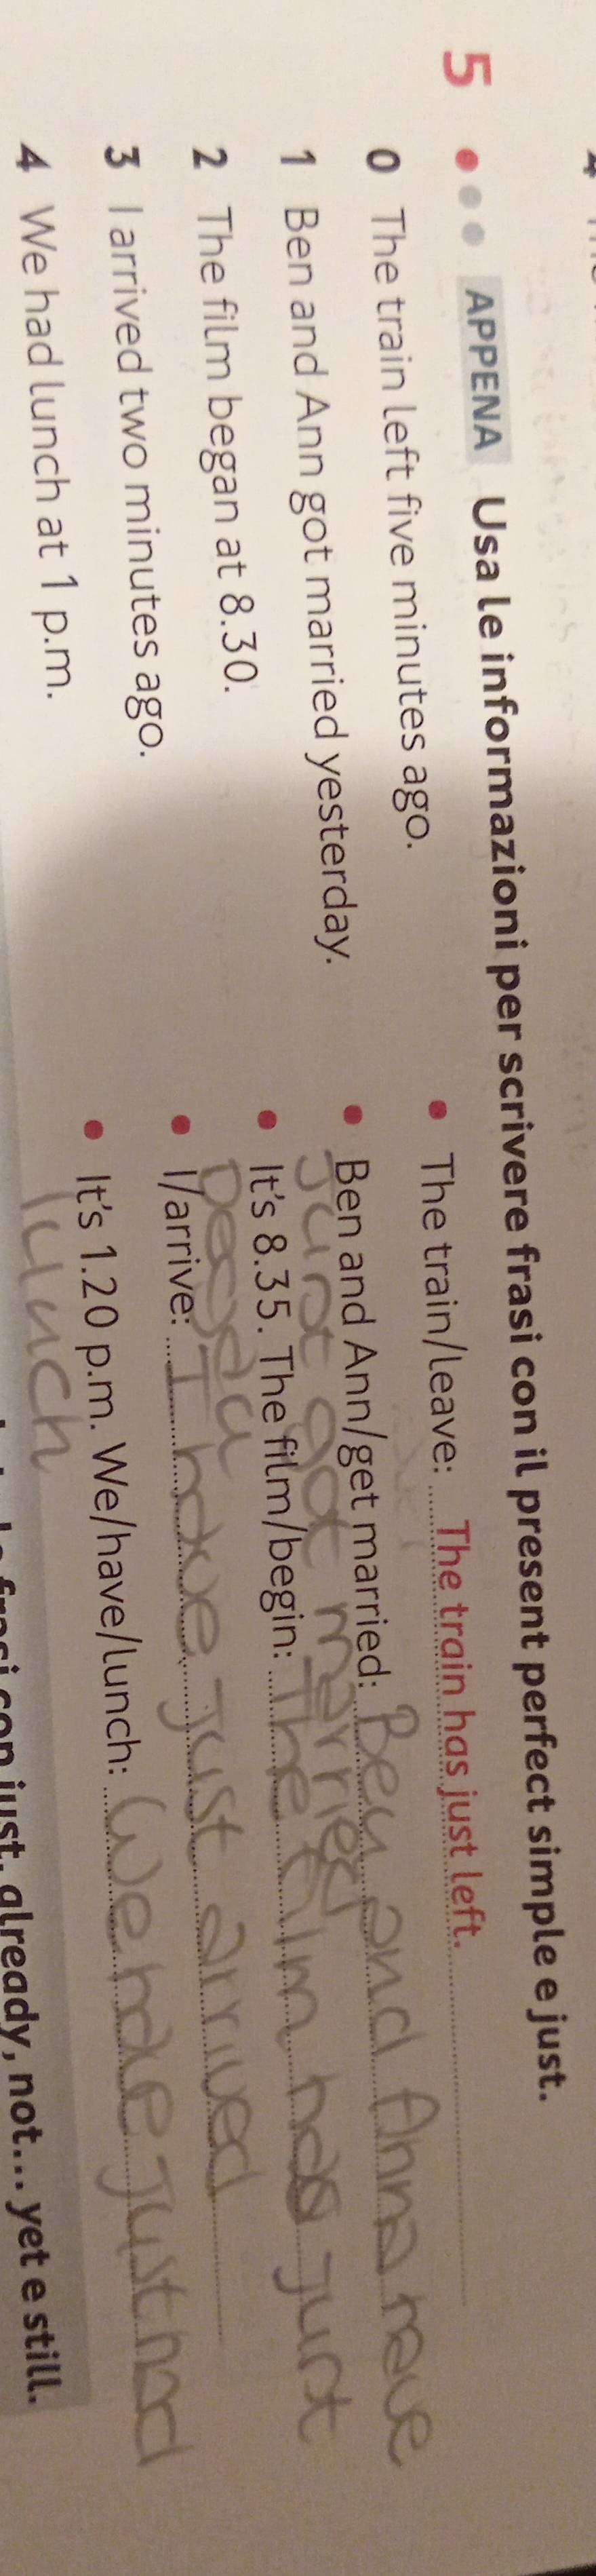 5 ●●● APPENA Usa le informazioni per scrivere frasi con il present perfect simple e just.
0 The train left five minutes ago. • The train/leave: The train has just left.
1 Ben and Ann got married yesterday. • Ben and Ann/get married: Ben and Anna have
just got married
2 The film began at 8.30. • It's 8.35. The film/begin: The film has just
3 I arrived two minutes ago. • I/arrive: I have just arrived
4 We had lunch at 1 p.m. • It's 1.20 p.m. We/have/lunch: We have just had
lunch
just, already, not... yet e still.